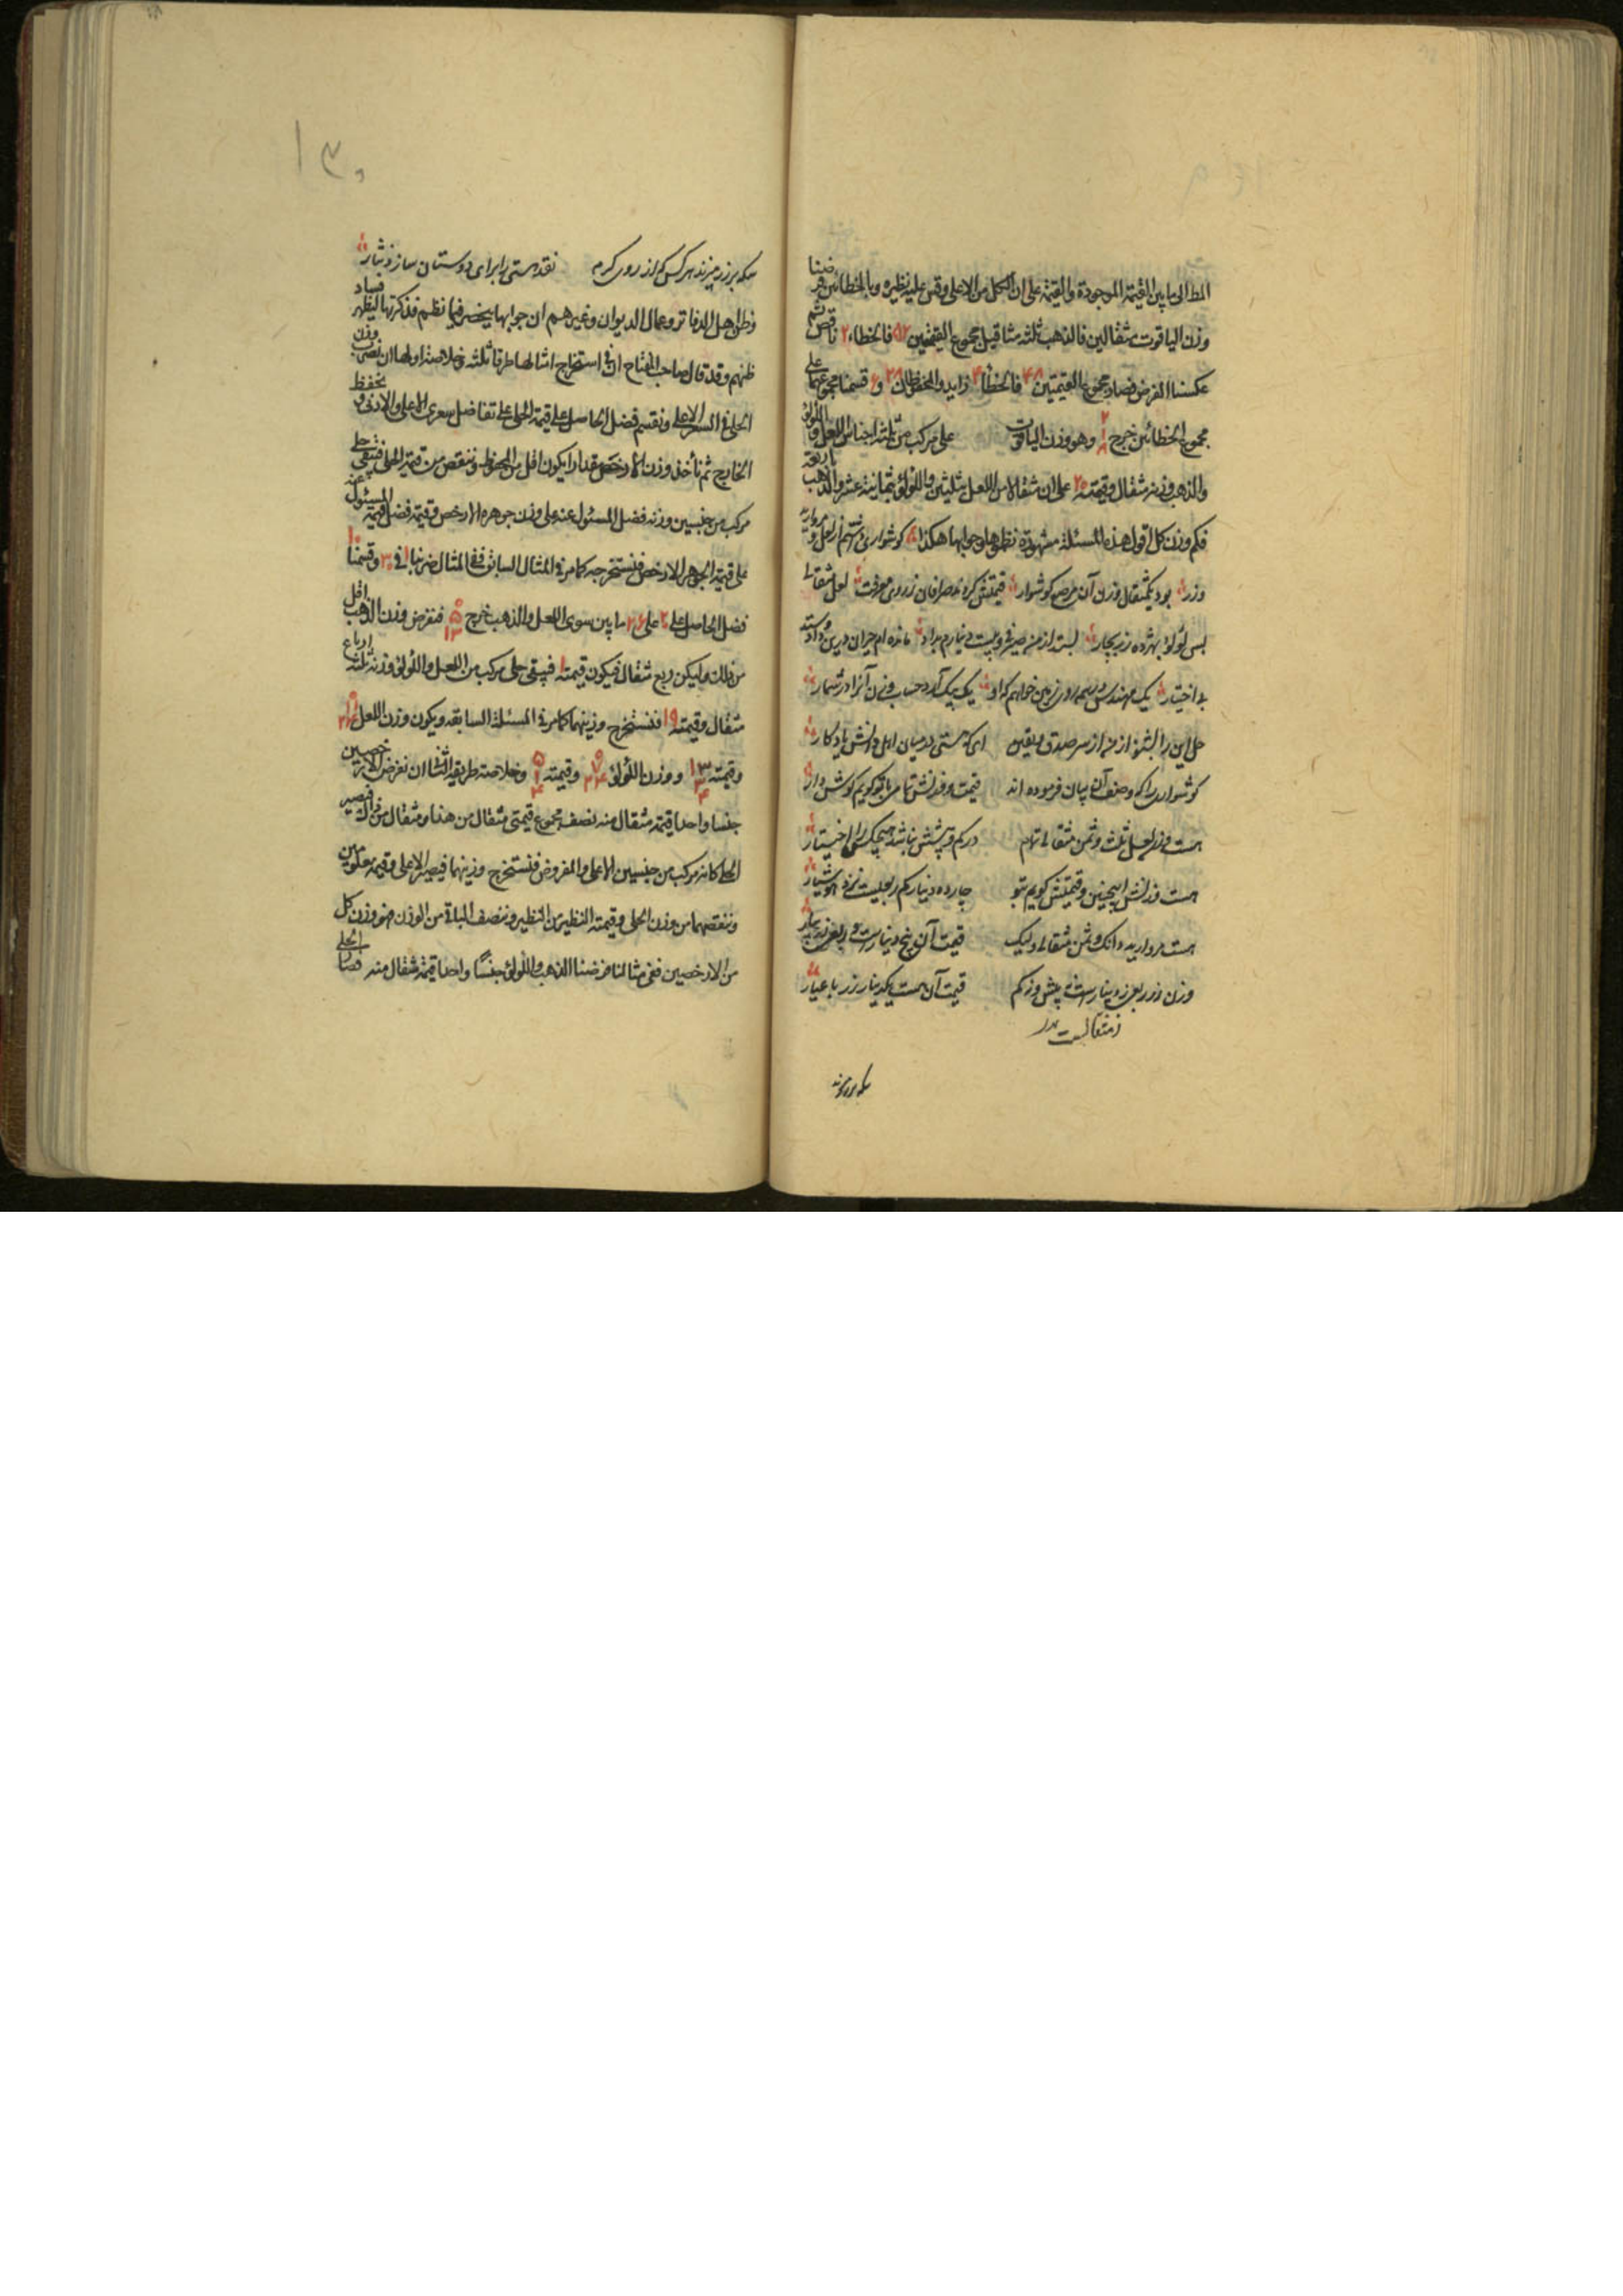 المط الی ما بین القیمة الموجودة والقیمة علی ان الکل من الاعلی وقس علیه نظیره وبالخطائین فرضنا
وزن الیاقوت مثقالین فالذهب ثلثه مثاقیل مجموع القیمتین ۵۲ فالخطاء ۲ ناقص ثم
عکسنا الفرض فصار مجموع القیمتین ۴۸ فالخطأ زاید والمحفوظان و قسمنا مجموعهما علی
مجموع الخطائین خرج وهو وزن الیاقوت حلی مرکب من ثلثه اجناس اللعل واللؤلؤ
والذهب وزنه مثقال وقیمته ۲۰ علی ان مثقالا من اللعل بثلثین واللؤلؤ بثمانیة عشر والذهب باربعة
فکم وزن کل اقول هذه المسئلة مشهورة نظموها وجوابها هکذا کوشواری از لعل و مروارید
وزر بود یکمثقال وزن آن مرصع کوشوار قیمتش کرده صرافان ز روی معرفت لعل مثقالی
بسی لؤلؤ بهژده زر بچار بستد از من صیرفی و بیست دینارم بداد مانده ام حیران درین داد وستد
بی اختیار یک مهندس در زمین خواهم که او یک بیک آرد حساب وزن آنرا در شمار
حل این را بشنو از من از سر صدق ویقین ای که هستی در میان اهل دانش یادکار
کوشواری را که وصف آن بیان فرموده اند قیمت و وزنش تمامی با تو کویم کوش دار
هست وزن لعل ثلث وثمن مثقالی تمام در کم و بیشش نباشد هیچکس را اختیار
هست وزنش اینچنین و قیمتش کویم بتو چارده دینار کم ربعیست نزد هوشیار
هست مروارید دانک و ثمن مثقالی ولیک قیمت آن پنج دینارست و ربعی
وزن زر ربعی ز دینارست نی بیش و نه کم قیمت آن هست یکدینار زر با عیار
ز مثقالست
سکه بر زر میزند
۱۳۰
سکه بر زر میزند هر کس که از روی کرم نقد هستی را برای دوستان سازد نثار
وظن اهل الدفاتر وعمال الدیوان وغیرهم ان جوابها ینحصر فیما نظم فذکرتها لیظهر فساد
ظنهم وقد قال صاحب المفتاح ان فی استخراج امثالها طرقا ثلثه وخلاصة اولها ان نضرب وزن
الحلی فی السعر الاعلی ونقسم فضل الحاصل علی قیمة الحلی علی تفاضل سعری الاعلی والادنی ونحفظ
الخارج ثم نأخذ وزن الارخص مقدارا یکون اقل من المحفوظ وننقص من قیمة الحلی فیبقی حلی
مرکب من جنسین وزنه فضل المسئول عنه علی وزن جوهره الارخص وقیمته فضل قیمة المسئول عنه
علی قیمة الجوهر الارخص فنستخرجه کما مر فی المثال السابق ففی المثال ضربنا ۱ فی ۳۰ وقسمنا ۱۰
فضل الحاصل علی ۲۰ علی ۲۶ ما بین سعری اللعل والذهب خرج ۵ ۱۳ فنفرض وزن الذهب اقل
من ذلک ولیکن ربع مثقال فیکون قیمته ۱ فیبقی حلی مرکب من اللعل واللؤلؤ وزنه ثلثه ارباع
مثقال وقیمته ۱۹ فنستخرج وزنیهما کما مر فی المسئلة السابقه ویکون وزن اللعل ۱۱ ۲۴
وقیمته ۱۳ ۳ ۴ ووزن اللؤلؤ ۷ ۲۴ وقیمته ۵ ۱ ۴ وخلاصة طریقه الثانی ان نفرض الارخصین
جنسا واحدا قیمة مثقال منه نصف مجموع قیمتی مثقال من هذا ومثقال من ذاک فیصیر
الحلی کانه مرکب من جنسین الاعلی والمفروض فنستخرج وزنیهما فیصیر الاعلی وقیمته معلومین
وننقصهما من وزن الحلی وقیمته النظیر من النظیر وننصف الباقی من الوزن فهو وزن کل
من الارخصین ففی مثالنا فرضنا الذهب واللؤلؤ جنسا واحدا قیمة مثقال منه فصار الحلی